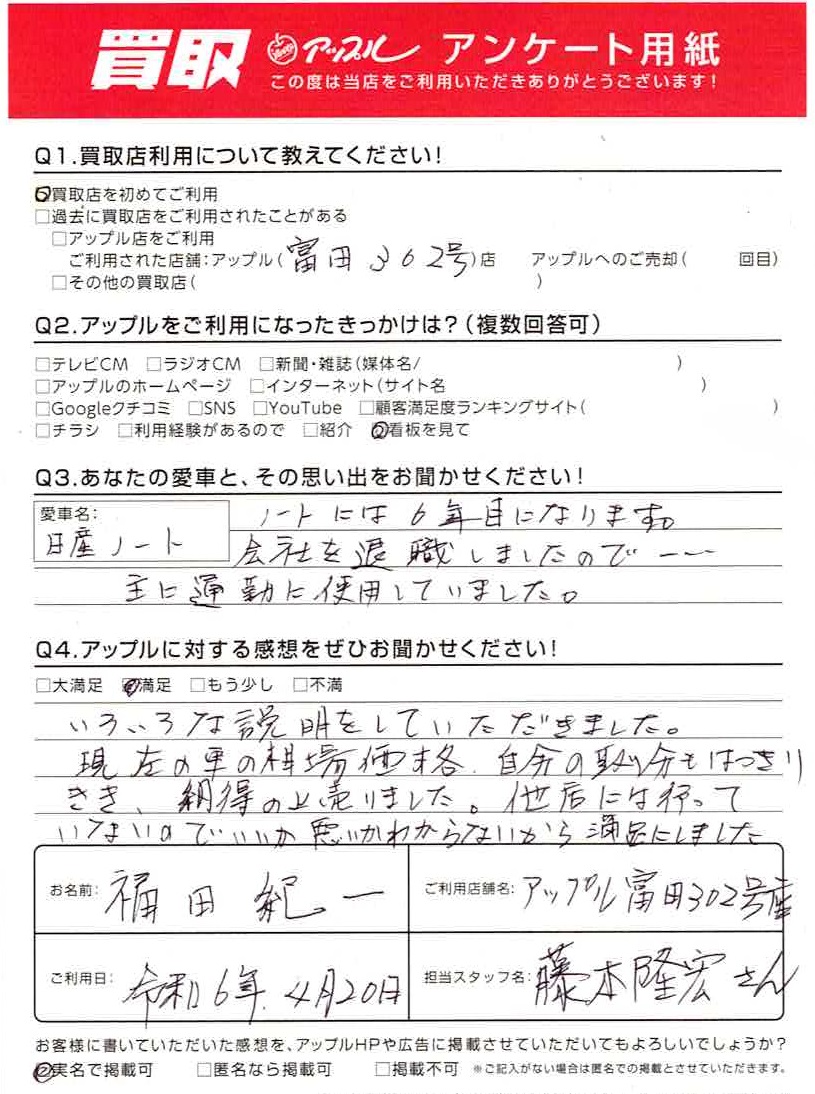 買取 アップル アンケート用紙
この度は当店をご利用いただきありがとうございます!
Q1.買取店利用について教えてください!
買取店を初めてご利用
□過去に買取店をご利用されたことがある
□アップル店をご利用
ご利用された店舗:アップル(富田362号)店 アップルへのご売却( 回目)
□その他の買取店( )
Q2.アップルをご利用になったきっかけは?(複数回答可)
□テレビCM □ラジオCM □新聞・雑誌(媒体名/ )
□アップルのホームページ □インターネット(サイト名 )
□Googleクチコミ □SNS □YouTube □顧客満足度ランキングサイト( )
□チラシ □利用経験があるので □紹介 看板を見て
Q3.あなたの愛車と、その思い出をお聞かせください!
愛車名:
日産ノート
ノートには6年目になります。
会社を退職しましたので――
主に運勤に使用していました。
Q4.アップルに対する感想をぜひお聞かせください!
□大満足 満足 □もう少し □不満
いろいろな説明をしていただきました。
現在の車の相場価格、自分の取分もはっきり
きき、納得の上売りました。他店には行って
いないのでいいか悪いかわからないから満足にしました
お名前: 福田 紀一
ご利用店舗名: アップル富田302号店
ご利用日: 令和6年4月20日
担当スタッフ名: 藤本隆宏さん
お客様に書いていただいた感想を、アップルHPや広告に掲載させていただいてもよろしいでしょうか?
実名で掲載可 □匿名なら掲載可 □掲載不可 ※ご記入がない場合は匿名での掲載とさせていただきます。